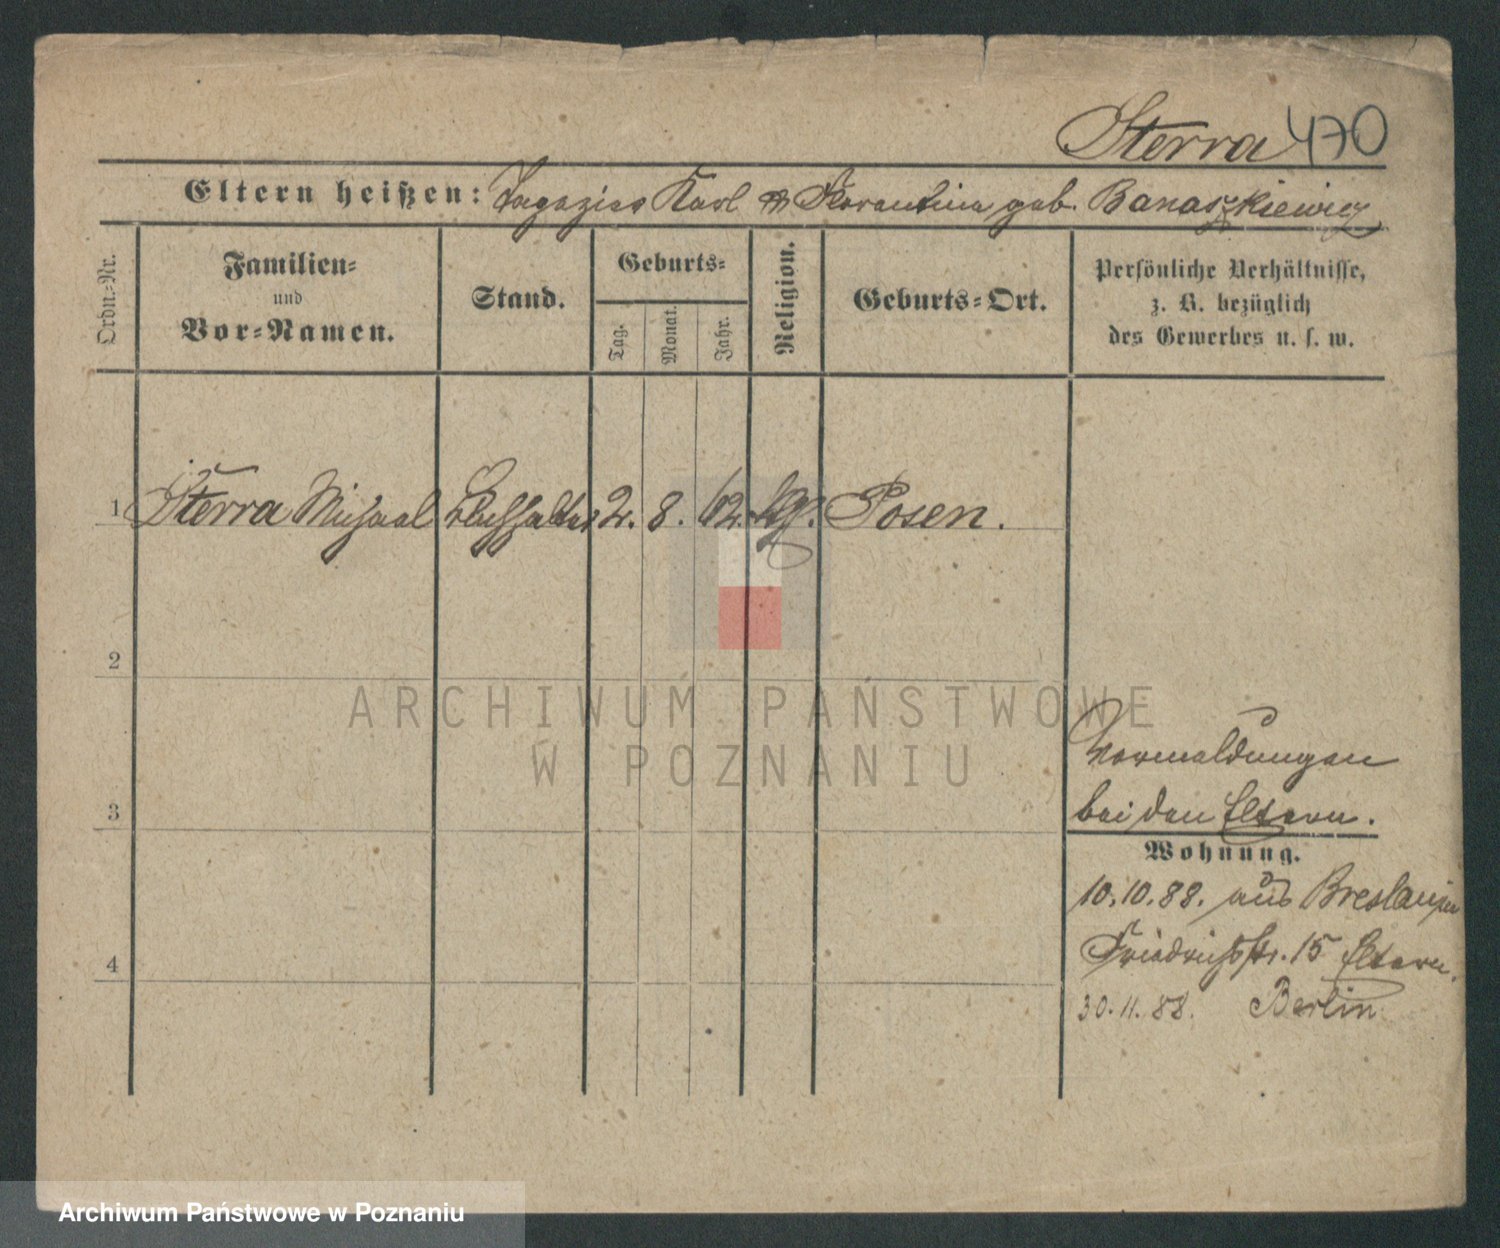 Sterra 470
Eltern heißen: Tapezier Karl Florentina geb. Banaszkiewicz
Ordn.-Nr.
Familien-
und
Vor-Namen.
Stand.
Geburts-
Tag.
Monat.
Jahr.
Religion.
Geburts-Ort.
Persönliche Verhältnisse,
z. B. bezüglich
des Gewerbes u. s. w.
1 Sterra Michael Buchhalter 2. 8. 62. kg. Posen.
2
ARCHIWUM PAŃSTWOWE
W POZNANIU
Vormeldungen
3 bei den Eltern.
Wohnung.
10.10.88. aus Breslau
4 Friedrichstr. 15 Eltern.
30.11.88. Berlin
Archiwum Państwowe w Poznaniu